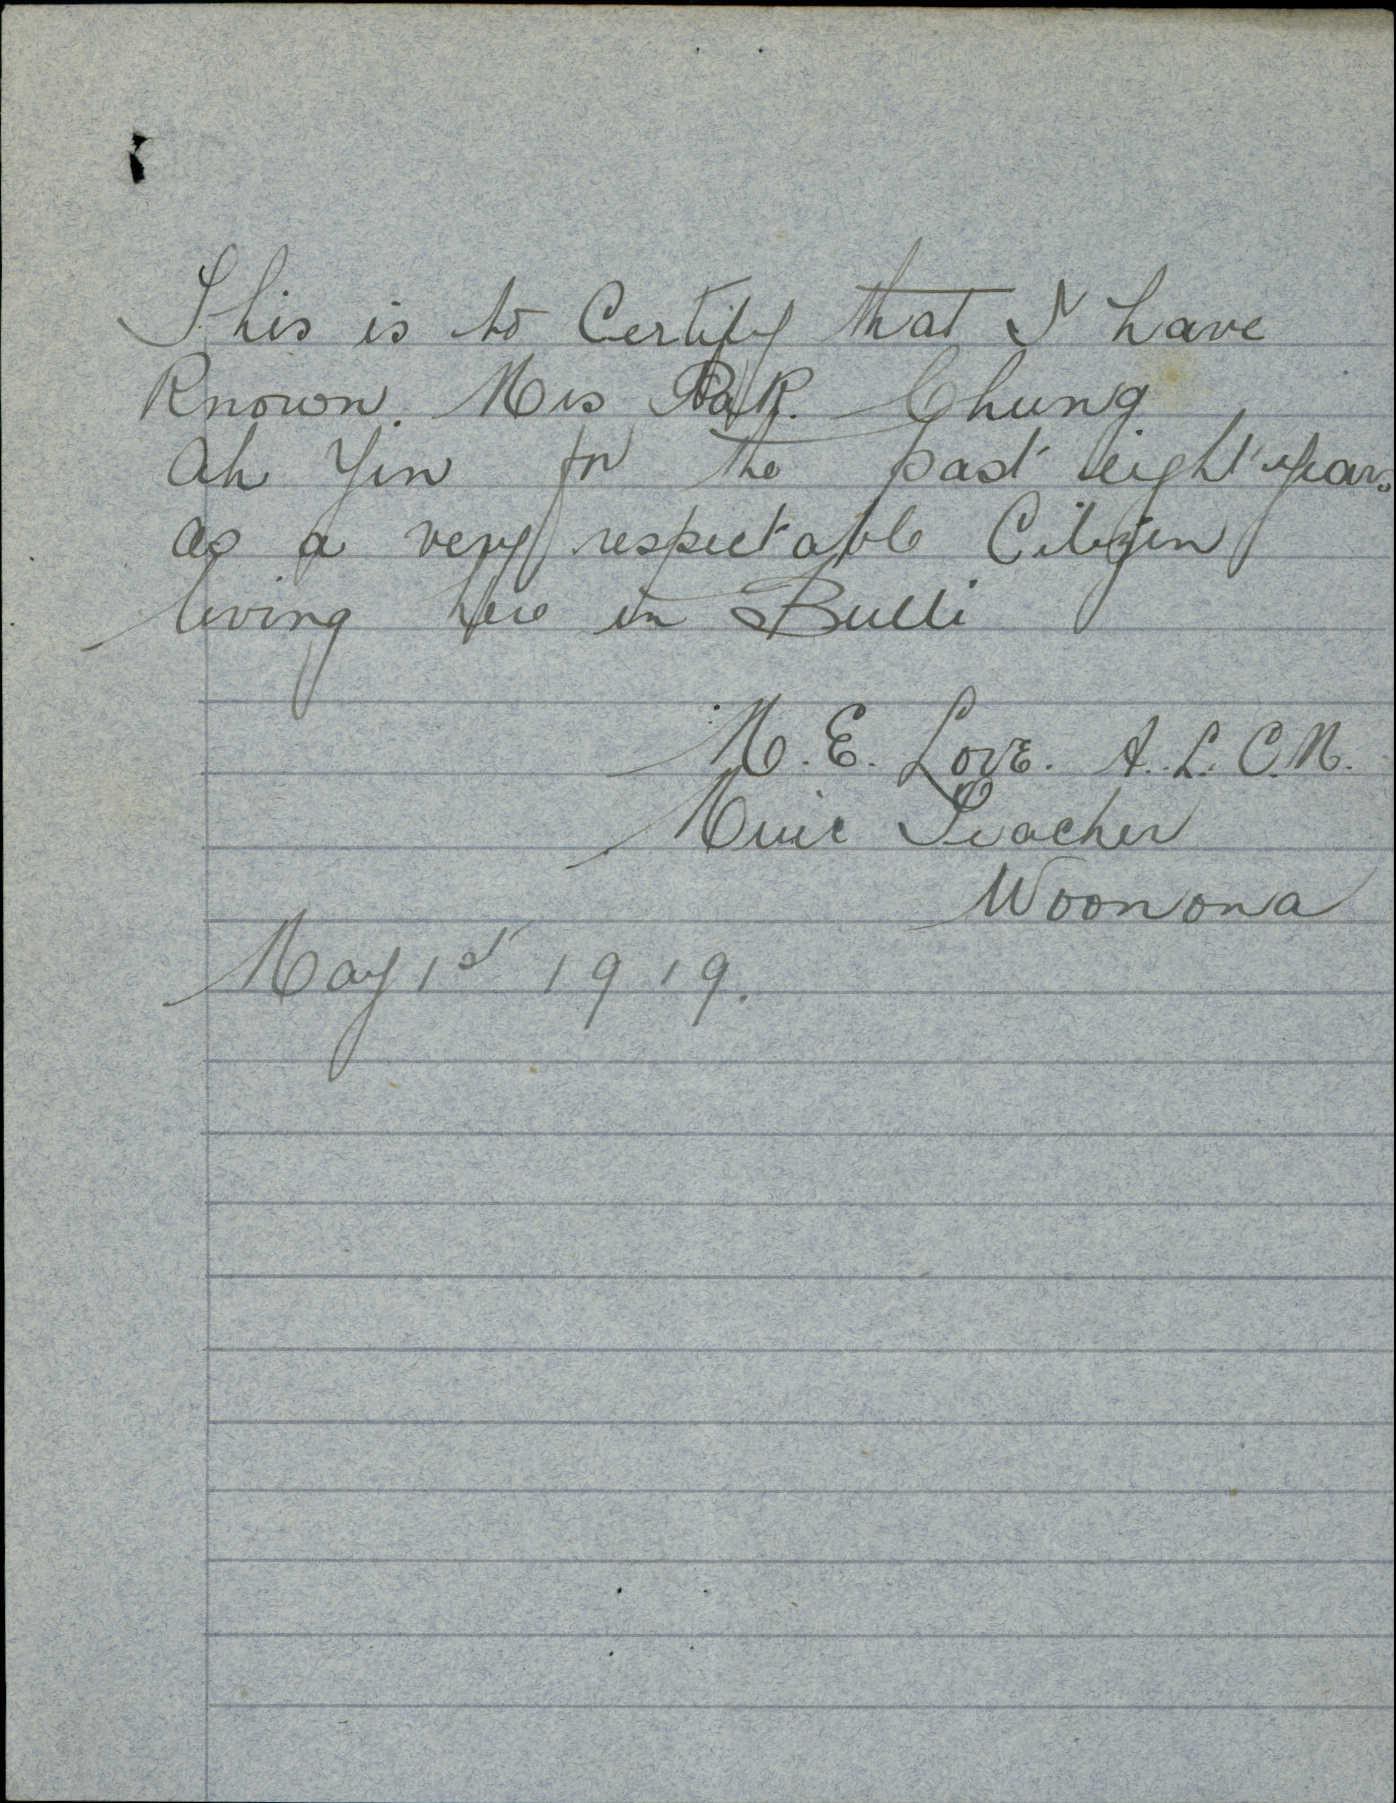 This is to Certify that I have
Known Mrs Pak Chung
Ah Yin for the past eight years
as a very respectable Citizen
living here in Bulli
M. E. Love. A. L. C. M.
Music Teacher
Woonona
May 1st 1919.